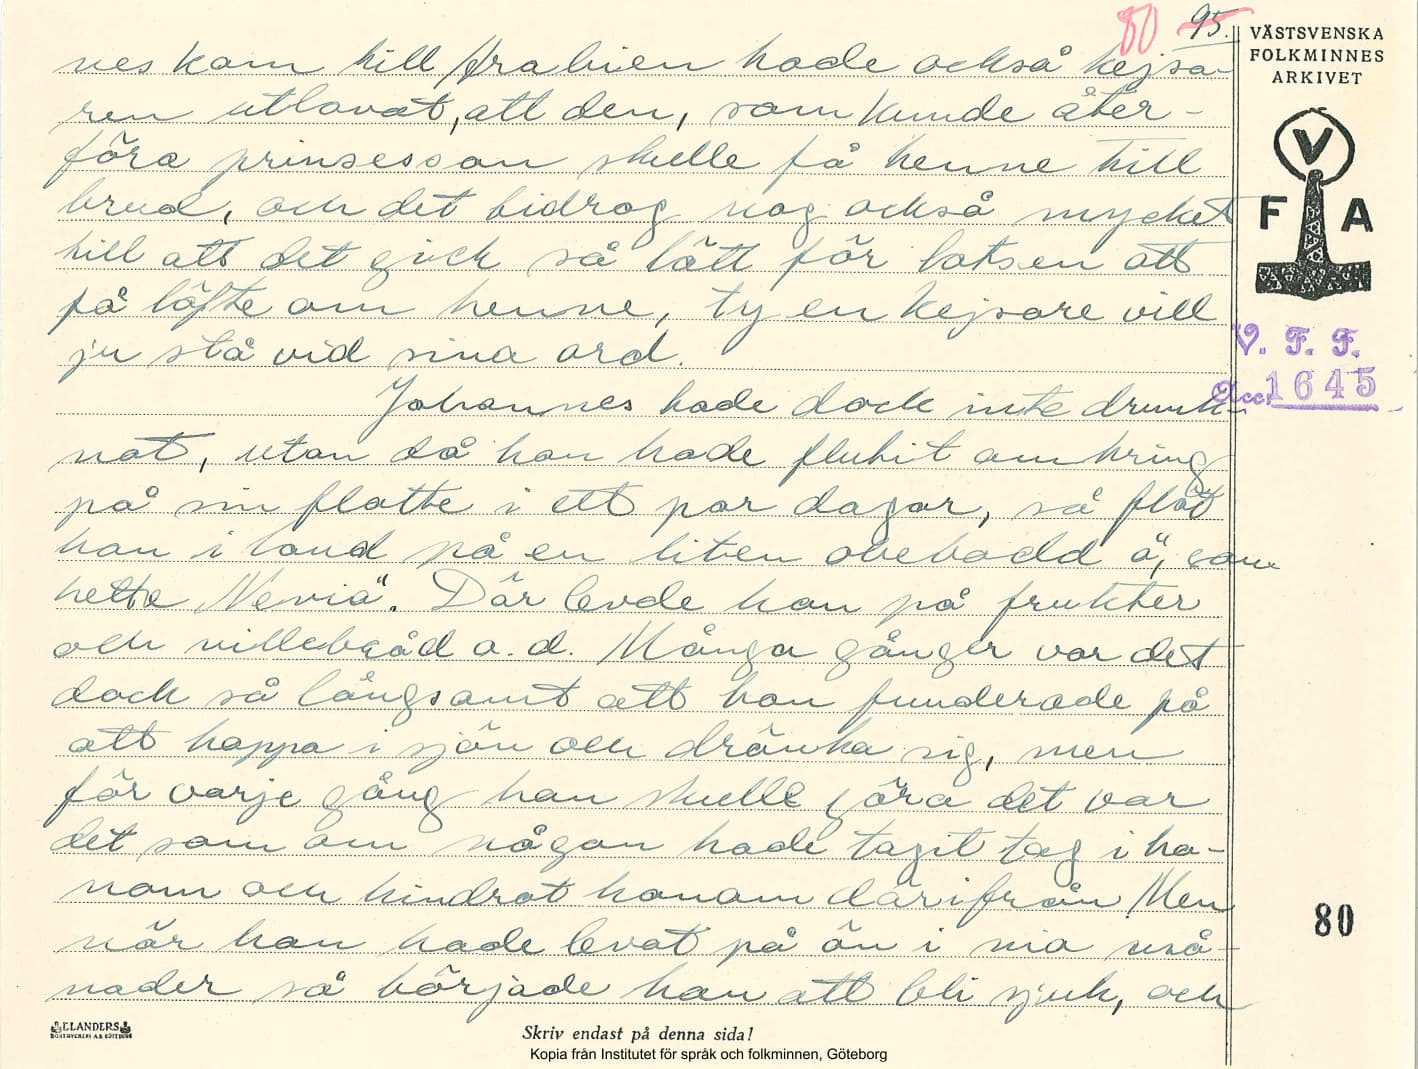 80 95.
VÄSTSVENSKA
FOLKMINNES
ARKIVET
V
F A
V. F. F.
Acc. 1645
nes kom till Arabien hade också kejsa-
ren utlovat, att den, som kunde åter-
föra prinsessan skulle få henne till
brud, och det bidrog nog också mycket
till att det gick så lätt för lotsen att
få löfte om henne, ty en kejsare vill
ju stå vid sina ord.
Johannes hade dock inte drunk-
nat, utan då han hade flutit omkring
på sin flotte i ett par dagar, så flöt
han i land på en liten obebodd ö, som
hette "Neviö". Där levde han på frukter
och villebråd o. d. Många gånger var det
dock så långsamt att han funderade på
att hoppa i sjön och dränka sig, men
för varje gång han skulle göra det var
det som om någon hade tagit tag i ho-
nom och hindrat honom därifrån. Men
när han hade levat på ön i nio må-
nader så började han att bli sjuk, och
80
ELANDERS
BOKTRYCKERI A.B. GÖTEBORG
Skriv endast på denna sida!
Kopia från Institutet för språk och folkminnen, Göteborg